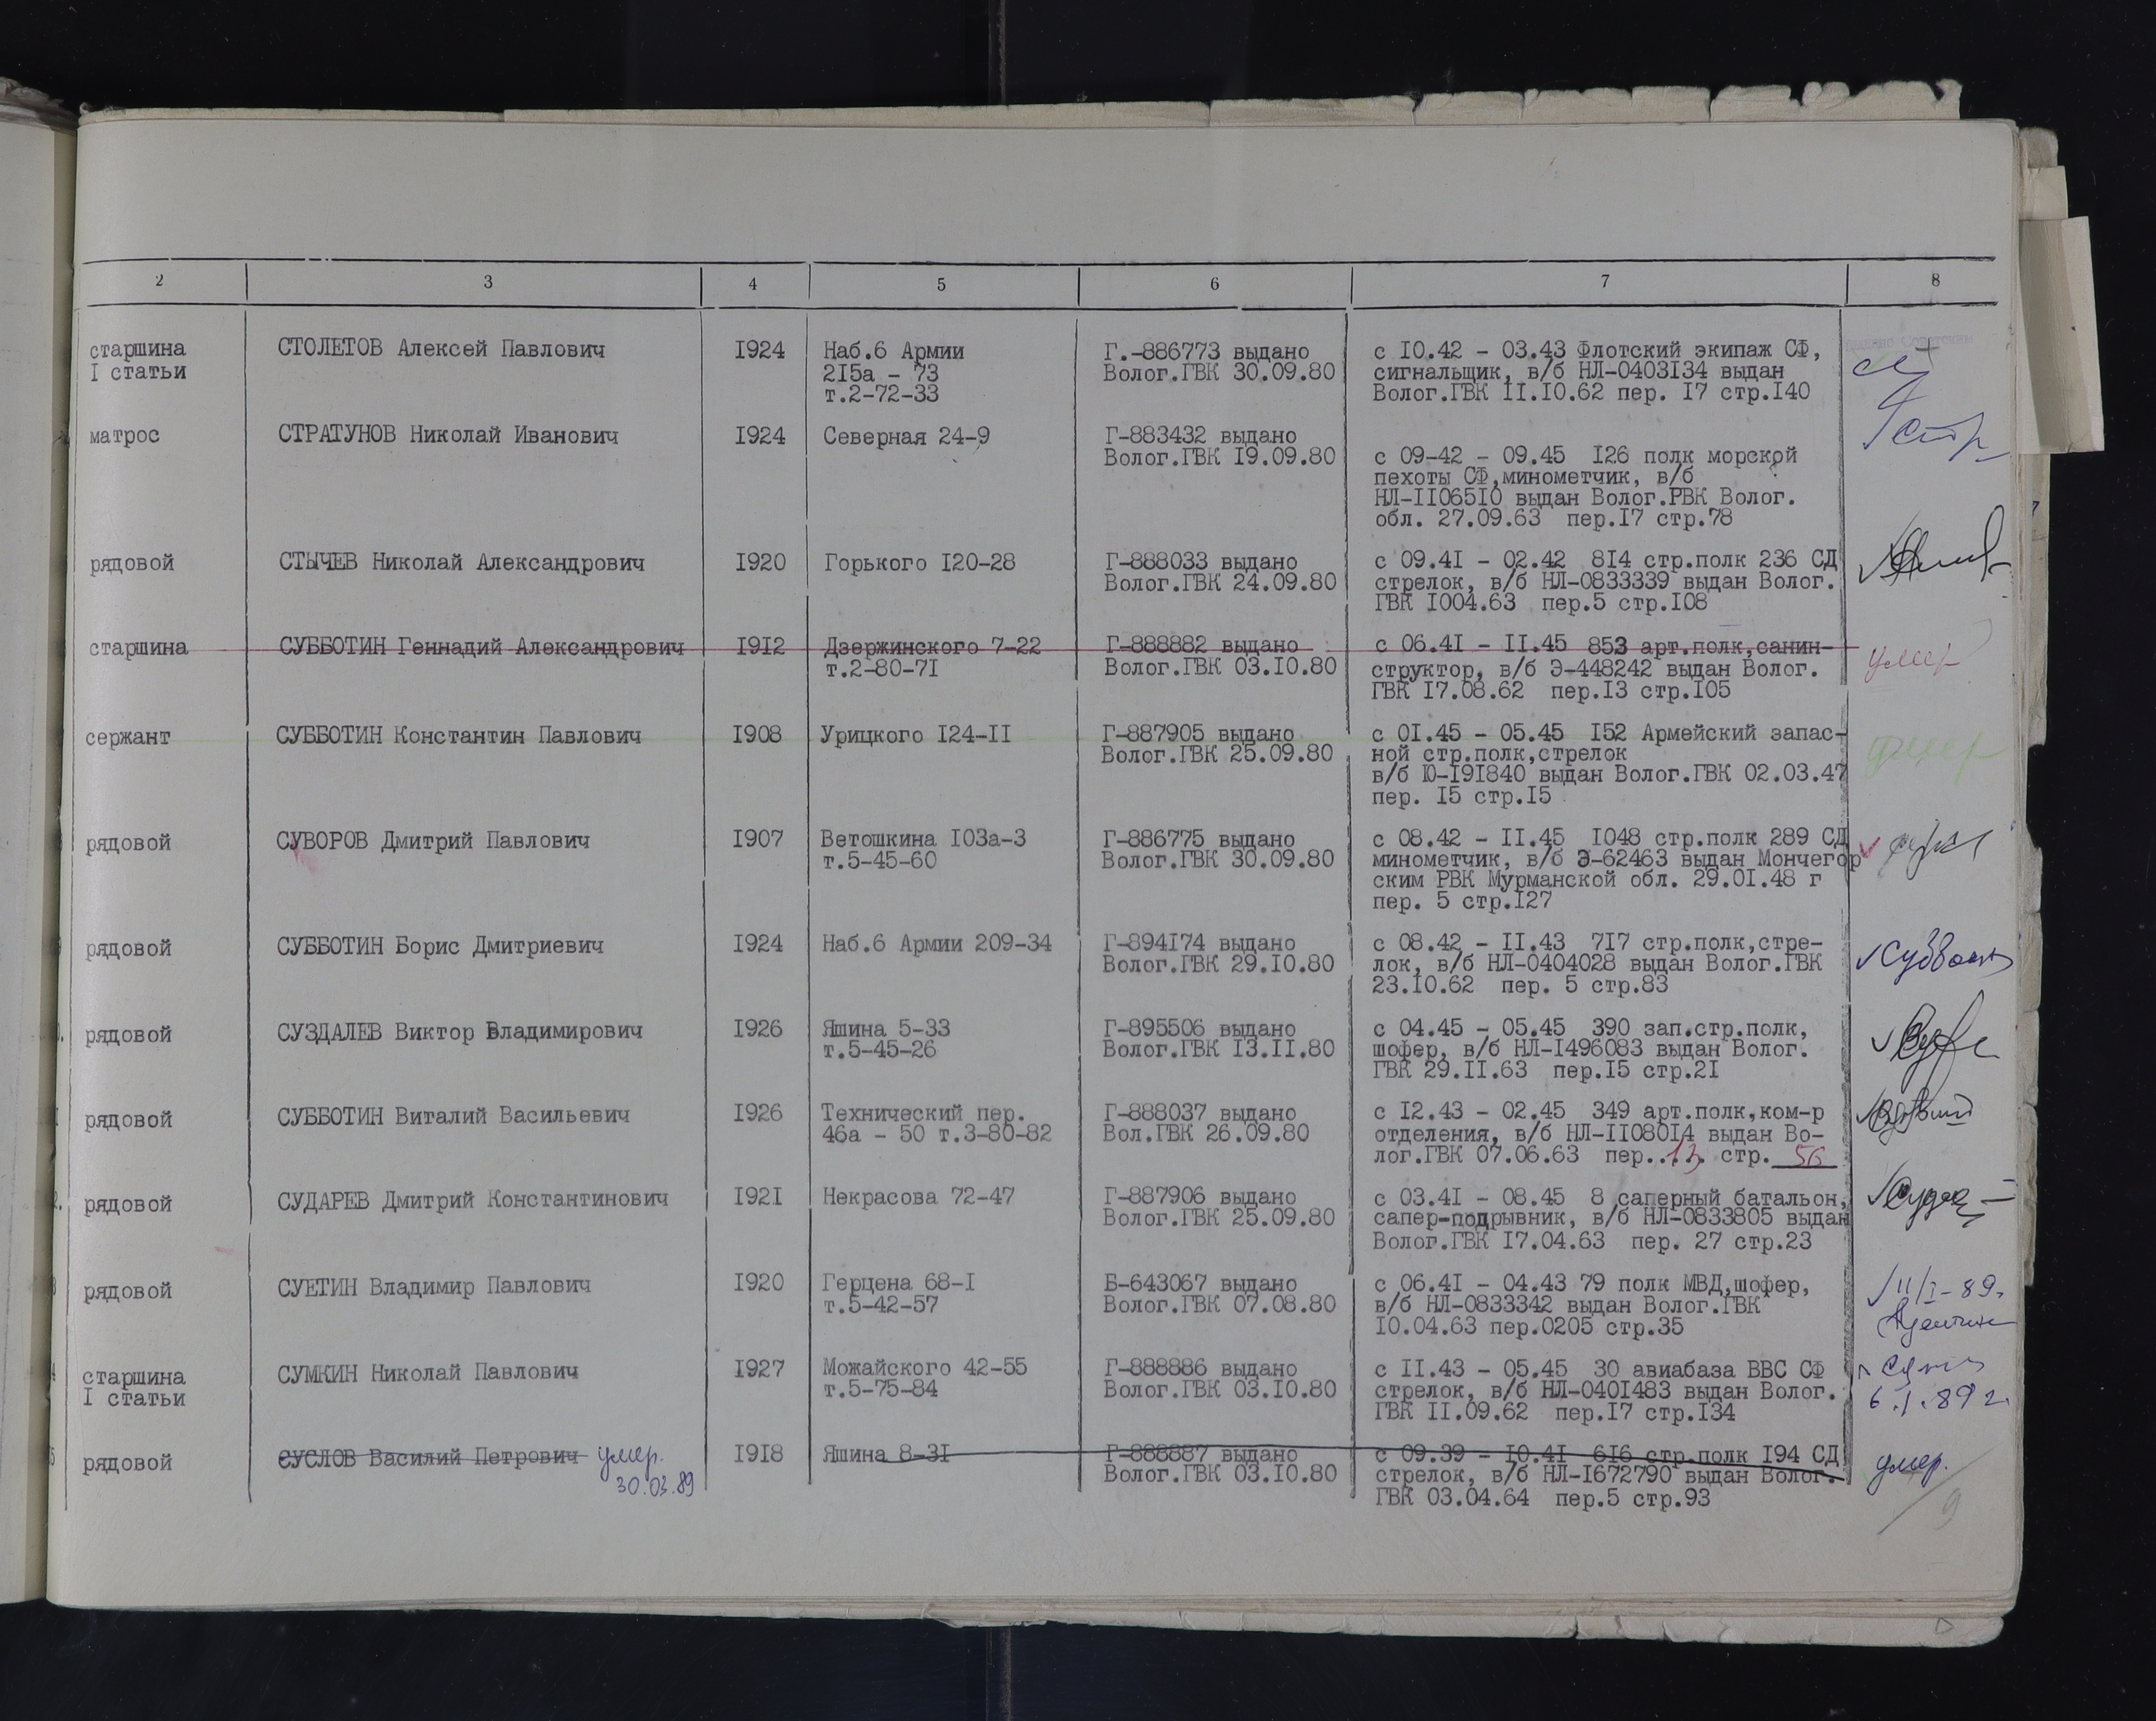 2 3 4 5 6 7 8
старшина СТОЛЕТОВ Алексей Павлович 1924 Наб.6 Армии Г.-886773 выдано с 10.42 - 03.43 Флотский экипаж СФ,
I статьи 215а - 73 Волог.ГВК 30.09.80 сигнальщик, в/б НЛ-0403134 выдан
т.2-72-33 Волог.ГВК 11.10.62 пер. 17 стр.140
матрос СТРАТУНОВ Николай Иванович 1924 Северная 24-9 Г-883432 выдано
Волог.ГВК 19.09.80 с 09-42 - 09.45 126 полк морской
пехоты СФ,минометчик, в/б
НЛ-1106510 выдан Волог.РВК Волог.
обл. 27.09.63 пер.17 стр.78
рядовой СТЫЧЕВ Николай Александрович 1920 Горького 120-28 Г-888033 выдано с 09.41 - 02.42 814 стр.полк 236 СД
Волог.ГВК 24.09.80 стрелок, в/б НЛ-0833339 выдан Волог.
ГВК 1004.63 пер.5 стр.108
старшина СУББОТИН Геннадий Александрович 1912 Дзержинского 7-22 Г-888882 выдано с 06.41 - 11.45 853 арт.полк,санин- умер
т.2-80-71 Волог.ГВК 03.10.80 структор, в/б Э-448242 выдан Волог.
ГВК 17.08.62 пер.13 стр.105
сержант СУББОТИН Константин Павлович 1908 Урицкого 124-11 Г-887905 выдано с 01.45 - 05.45 152 Армейский запас- умер
Волог.ГВК 25.09.80 ной стр.полк,стрелок
в/б Ю-191840 выдан Волог.ГВК 02.03.47
пер. 15 стр.15
рядовой СУВОРОВ Дмитрий Павлович 1907 Ветошкина 103а-3 Г-886775 выдано с 08.42 - 11.45 1048 стр.полк 289 СД
т.5-45-60 Волог.ГВК 30.09.80 минометчик, в/б Э-62463 выдан Мончегор
ским РВК Мурманской обл. 29.01.48 г
пер. 5 стр.127
рядовой СУББОТИН Борис Дмитриевич 1924 Наб.6 Армии 209-34 Г-894174 выдано с 08.42 - 11.43 717 стр.полк,стре-
Волог.ГВК 29.10.80 лок, в/б НЛ-0404028 выдан Волог.ГВК
23.10.62 пер. 5 стр.83
рядовой СУЗДАЛЕВ Виктор Владимирович 1926 Яшина 5-33 Г-895506 выдано с 04.45 - 05.45 390 зап.стр.полк,
т.5-45-26 Волог.ГВК 13.11.80 шофер, в/б НЛ-1496083 выдан Волог.
ГВК 29.11.63 пер.15 стр.21
рядовой СУББОТИН Виталий Васильевич 1926 Технический пер. Г-888037 выдано с 12.43 - 02.45 349 арт.полк,ком-р
46а - 50 т.3-80-82 Вол.ГВК 26.09.80 отделения, в/б НЛ-1108014 выдан Во-
лог.ГВК 07.06.63 пер. 13 стр. 56
рядовой СУДАРЕВ Дмитрий Константинович 1921 Некрасова 72-47 Г-887906 выдано с 03.41 - 08.45 8 саперный батальон,
Волог.ГВК 25.09.80 сапер-подрывник, в/б НЛ-0833805 выдан
Волог.ГВК 17.04.63 пер. 27 стр.23
рядовой СУЕТИН Владимир Павлович 1920 Герцена 68-1 Б-643067 выдано с 06.41 - 04.43 79 полк МВД,шофер, 11/I-89.
т.5-42-57 Волог.ГВК 07.08.80 в/б НЛ-0833342 выдан Волог.ГВК
10.04.63 пер.0205 стр.35
старшина СУМКИН Николай Павлович 1927 Можайского 42-55 Г-888886 выдано с 11.43 - 05.45 30 авиабаза ВВС СФ
I статьи т.5-75-84 Волог.ГВК 03.10.80 стрелок, в/б НЛ-0401483 выдан Волог. 6.1.89 г.
ГВК 11.09.62 пер.17 стр.134
рядовой СУСЛОВ Василий Петрович умер. 1918 Яшина 8-31 Г-888887 выдано с 09.39 - 10.41 616 стр.полк 194 СД умер.
30.03.89 Волог.ГВК 03.10.80 стрелок, в/б НЛ-1672790 выдан Волог.
ГВК 03.04.64 пер.5 стр.93
9